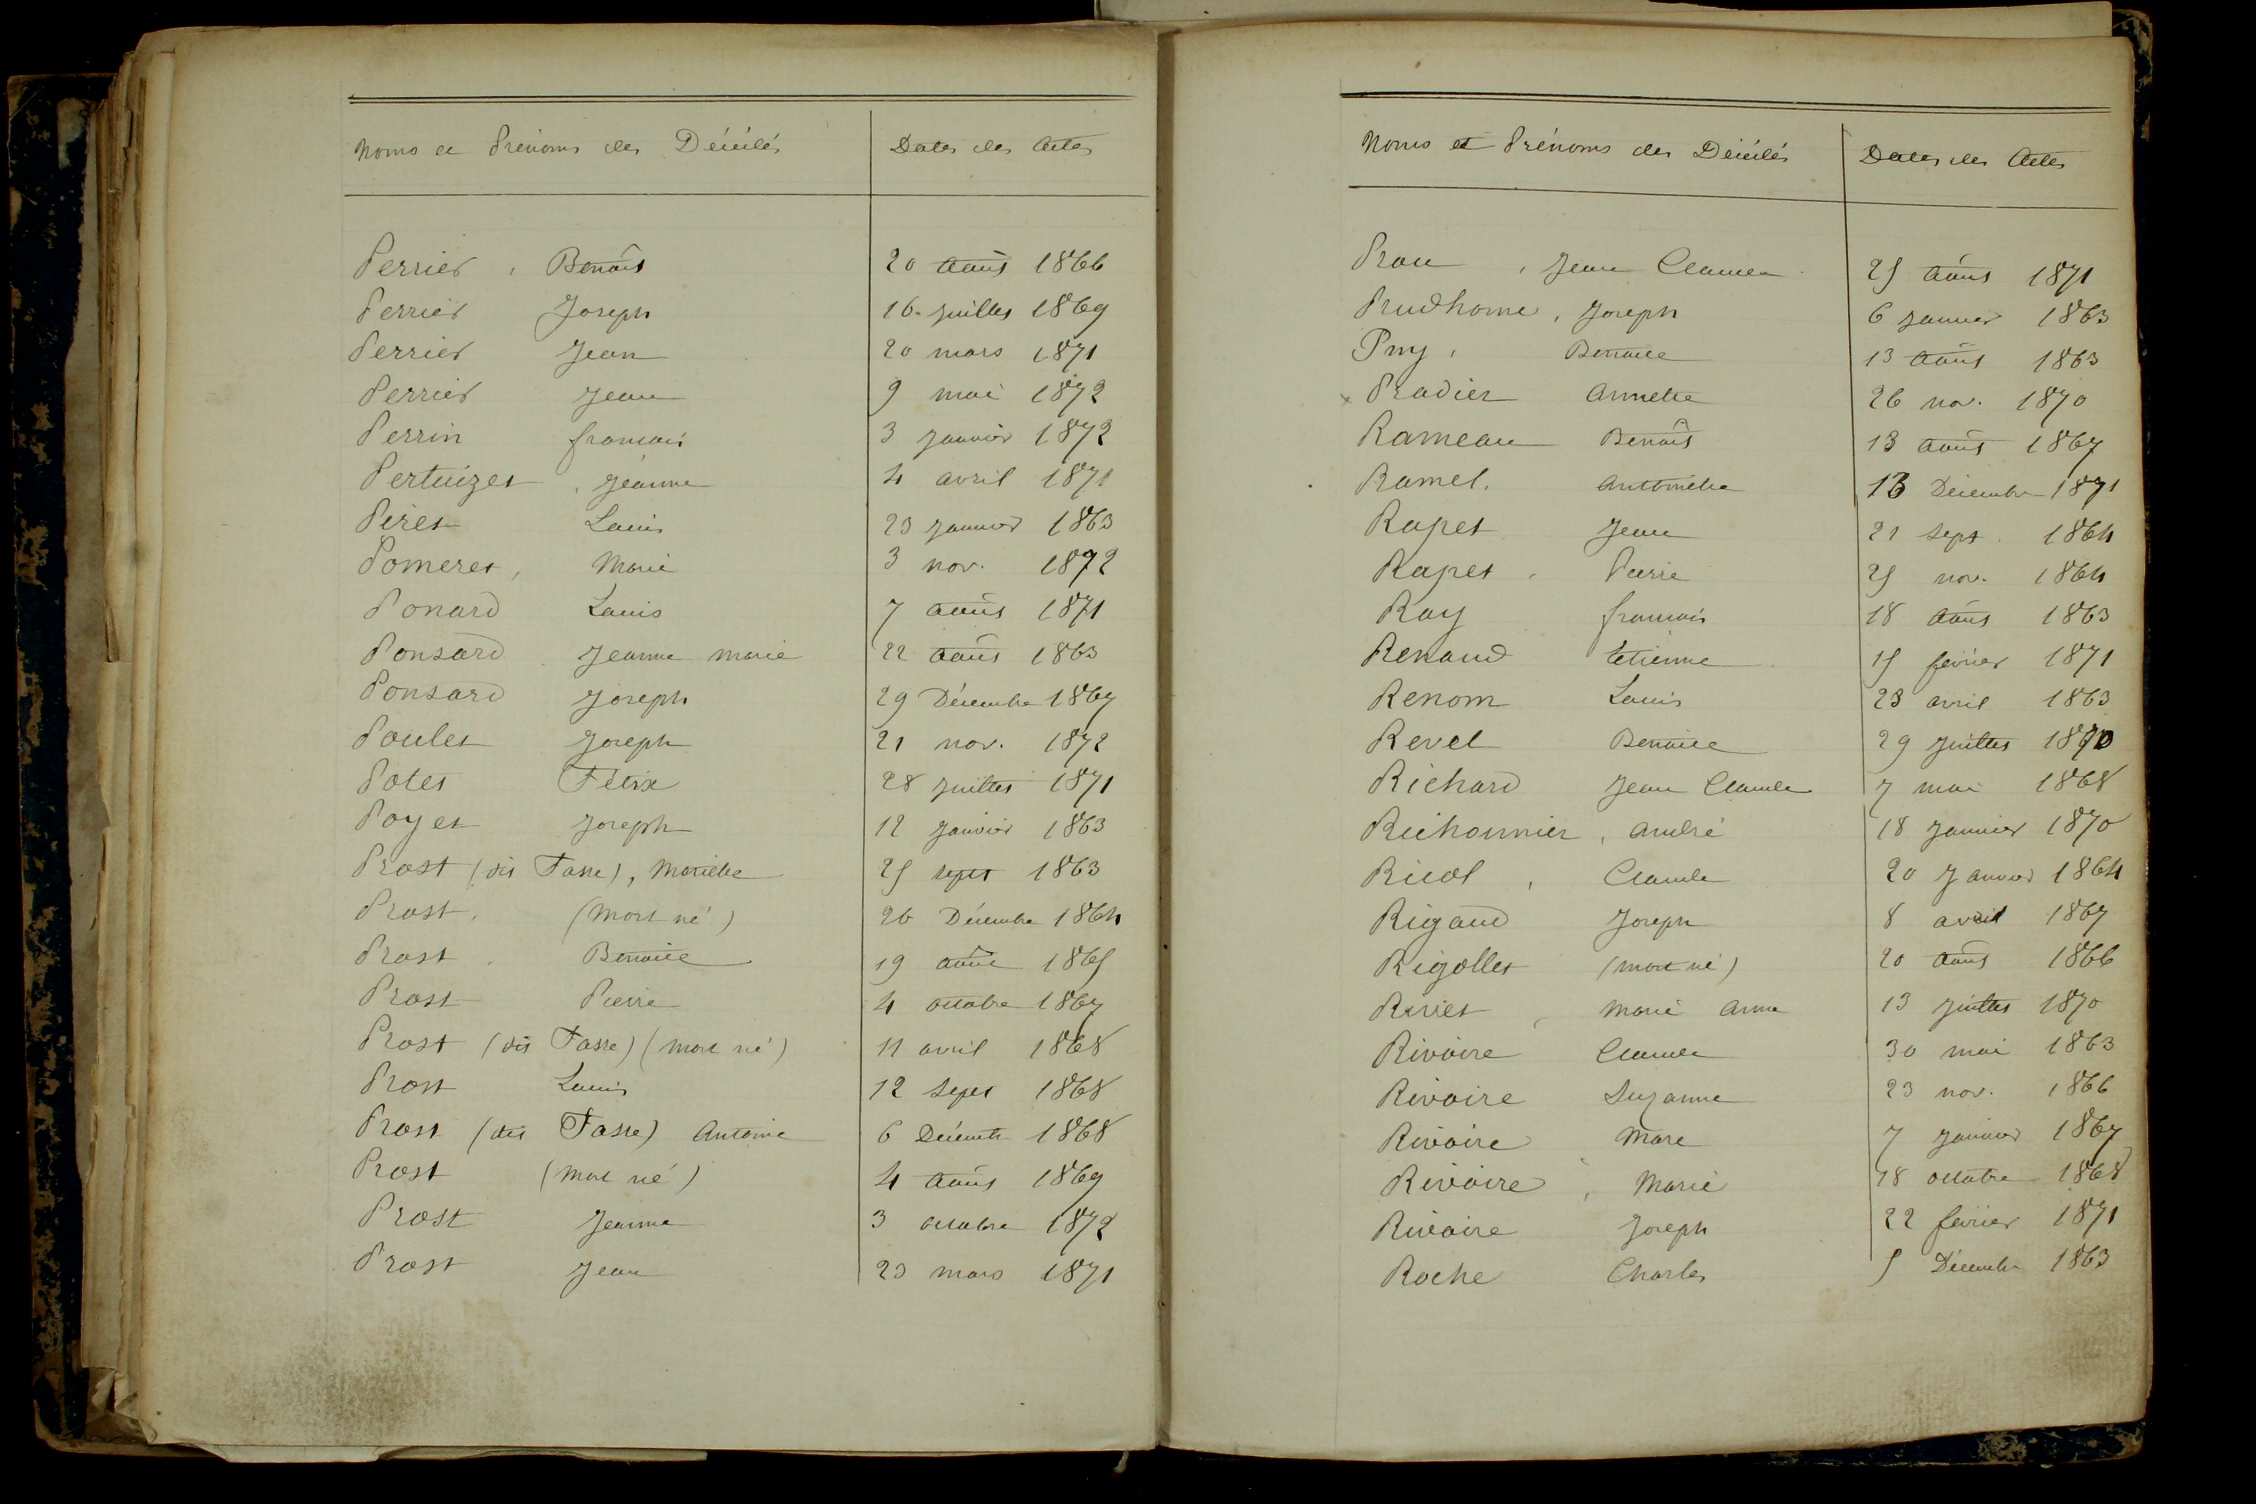 Noms et Prénoms des Décédés Dates des Actes
Perrier, Benoît 20 août 1866
Perrier Joseph 16 juillet 1869
Perrier Jean 20 mars 1871
Perrier Jean 9 mai 1872
Perrin françois 3 janvier 1872
Pertuizet, Jeanne 4 avril 1871
Piret Louis 23 janvier 1863
Pomeret, Marie 3 nov. 1872
Ponard Louis 7 août 1871
Ponsard Jeanne marie 22 août 1863
Ponsard Joseph 29 Décembre 1867
Poulet Joseph 21 nov. 1872
Potet Félix 28 juillet 1871
Poyet Joseph 12 janvier 1863
Prost (dit Fasse), Mariette 25 sept 1863
Prost, (Mort né) 26 Décembre 1864
Prost, Benoite 19 août 1865
Prost Pierre 4 octobre 1867
Prost (dit Fasse) (mort né) 11 avril 1868
Prost Louis 12 sept 1868
Prost (dit Fasse) Antoine 6 Décemb 1868
Prost (Mort né) 4 août 1869
Prost Jeanne 3 octobre 1872
Prost Jean 23 mars 1871
Noms et Prénoms des Décédés Dates des Actes
Prou, Jean Claude 25 août 1871
Prudhome, Joseph 6 janvier 1863
Puy, Benoite 13 août 1863
x Pradier annette 26 nov. 1870
Rameau Benoît 13 août 1867
Ramel. antoinette 13 Décembre 1871
Rapet Jean 21 sept. 1864
Rapet, Pierre 25 nov. 1864
Ray françois 18 août 1863
Renaud Etienne 15 février 1871
Renom Louis 23 avril 1863
Revel Benoite 29 juillet 1870
Richard Jean Claude 7 mai 1868
Richonnier, andré 18 janvier 1870
Ricol, Claude 20 janvier 1864
Rigaud Joseph 8 avril 1867
Rigollet (mort né) 20 août 1866
Riviet, Marie Anne 13 juillet 1870
Rivoire Claude 30 mai 1863
Rivoire Suzanne 23 nov. 1866
Rivoire Marc 7 janvier 1867
Rivoire, Marie 18 octobre 1868
Rivoire Joseph 22 février 1871
Roche Charles 5 Décembre 1863